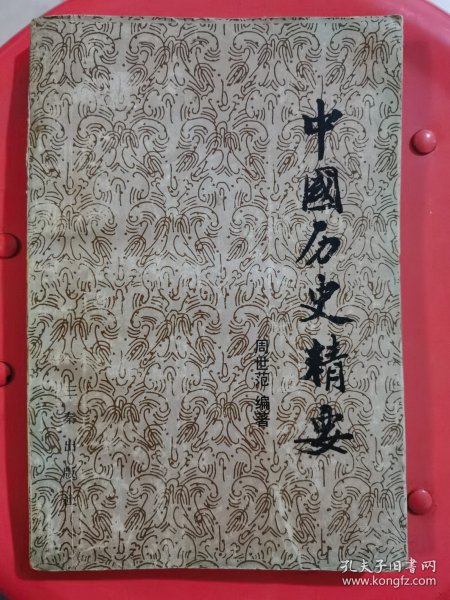 中國历史精要
周世范 编著
三秦出版社
孔夫子旧书网
www.kongfz.com